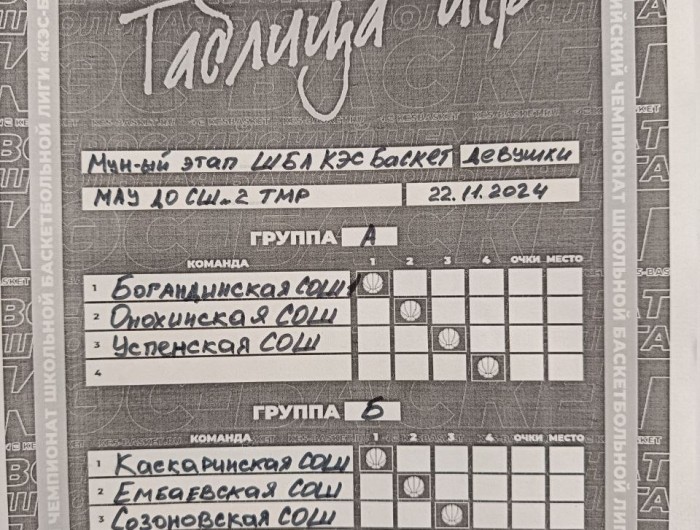 Таблица игр
Мун-ый этап ШБЛ КЭС Баскет девушки
МАУ ДО СШ №2 ТМР 22.11.2024
ГРУППА А
КОМАНДА 1 2 3 4 ОЧКИ МЕСТО
1 Богандинская СОШ1
2 Онохинская СОШ
3 Успенская СОШ
4
ГРУППА Б
КОМАНДА 1 2 3 4 ОЧКИ МЕСТО
1 Каскаринская СОШ
2 Ембаевская СОШ
3 Созоновская СОШ
ЧЕМПИОНАТ ШКОЛЬНОЙ БАСКЕТБОЛЬНОЙ ЛИГИ «КЭС-Б
ИЙСКИЙ ЧЕМПИОНАТ ШКОЛЬНОЙ БАСКЕТБОЛЬНОЙ ЛИ